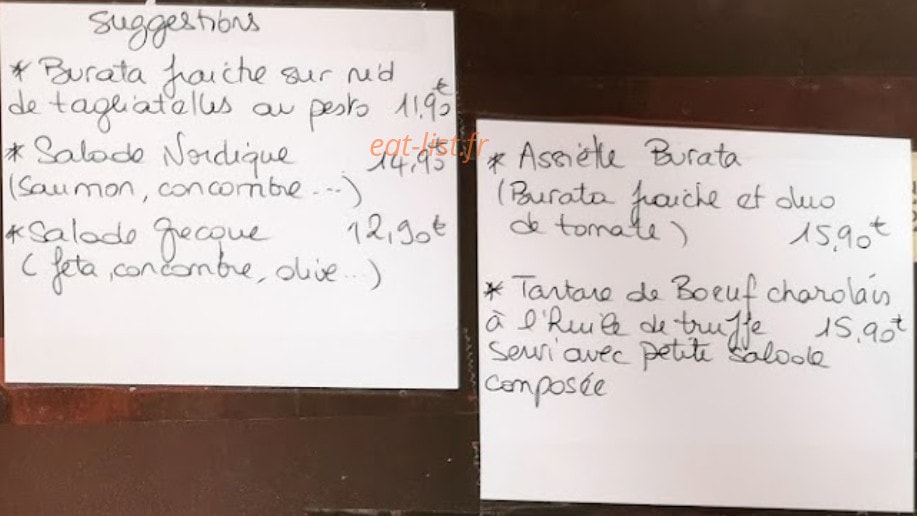 Suggestions
* Burata fraiche sur nid
de tagliatelles au pesto 11,90€
* Salade Nordique 14,90€
(Saumon, concombre...)
* Salade Grecque 12,90€
(feta, concombre, olive...)
eat-list.fr
* Assiette Burata
(Burata fraiche et duo
de tomate) 15,90€
* Tartare de Boeuf charolais
à l'Huile de truffe 15,90€
servi avec petite salade
composée